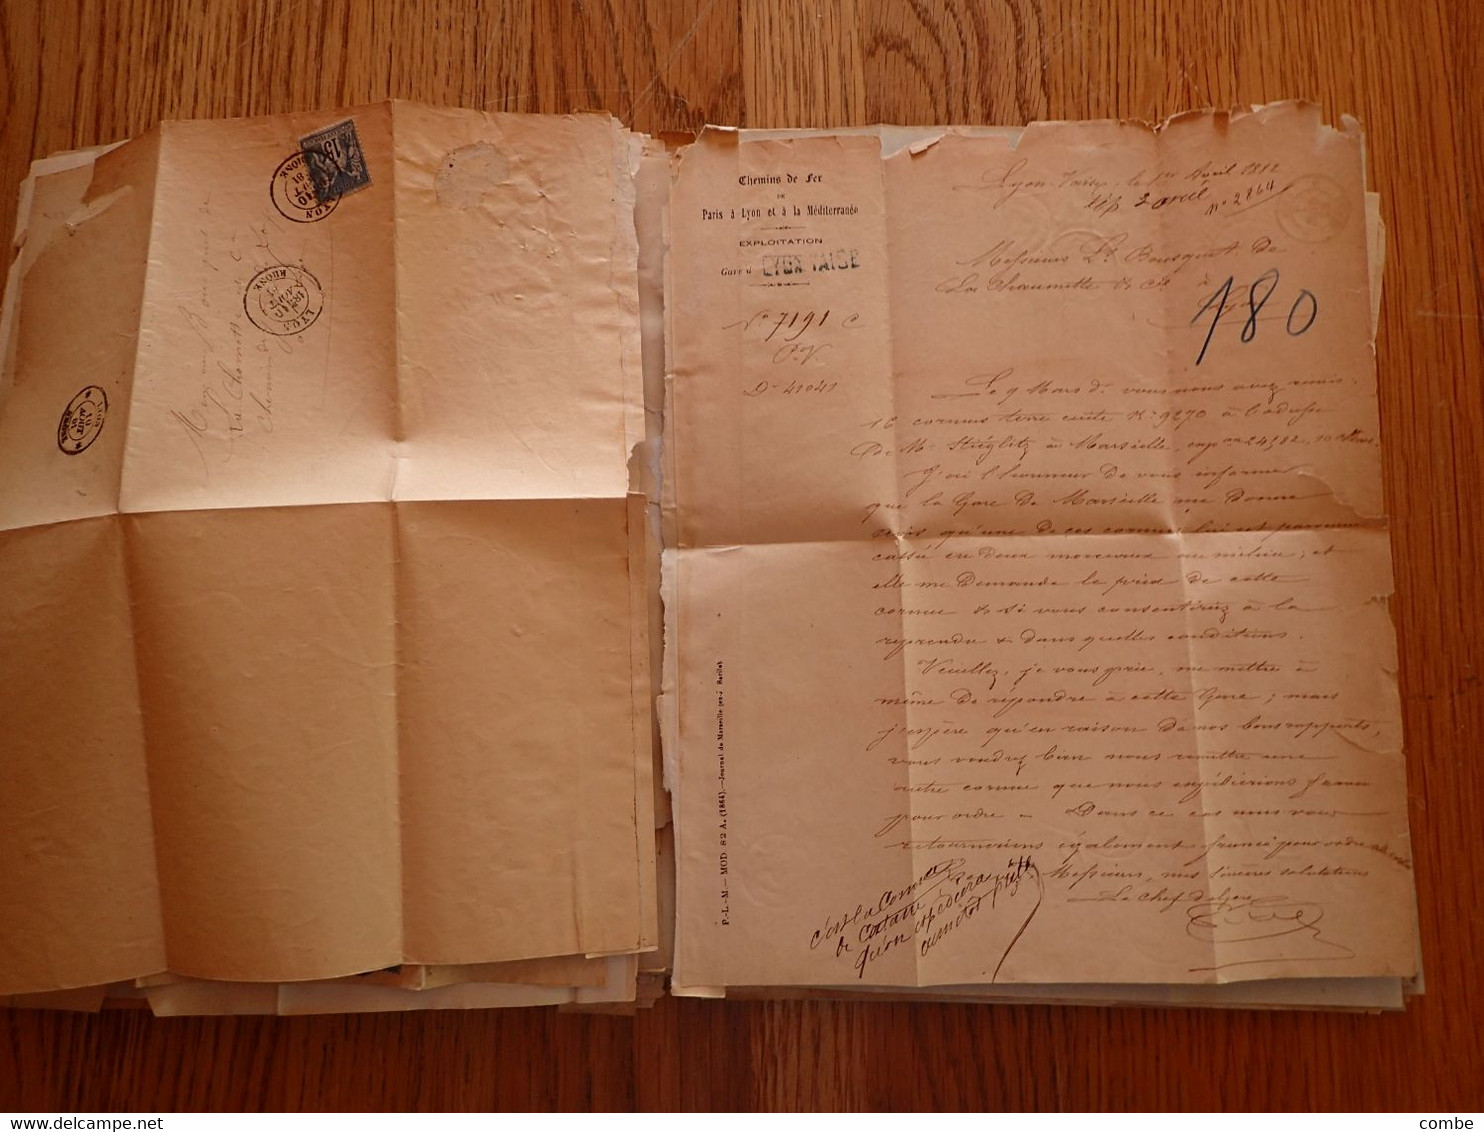 15
LYON
RHONE
LYON
RHONE
LYON
RHONE
10
AOUT
Chemins de Fer
DE
Paris à Lyon et à la Méditerranée
EXPLOITATION
Gare d LYON VAISE
N° 7191 C
P.V.
Dn 41041
Lyon-Vaise, le 1er Avril 1882
rép 2 avril
n° 2864
Messieurs Ls Bousquet de
La Chaumette & Cie à
Lyon
180
Le 9 Mars dr vous nous avez remis
16 cornues terre cuite N° 9270 à l'adresse
de Mr Stieglitz à Marseille, expon 24582, 10 Mars.
J'ai l'honneur de vous informer
que la Gare de Marseille me donne
avis qu'une de ces cornues lui est parvenue
cassée en deux morceaux au milieu; et
elle me demande le prix de cette
cornue & si vous consentiriez à la
reprendre & dans quelles conditions.
Veuillez, je vous prie, me mettre à
même de répondre à cette Gare; mais
j'espère qu'en raison de nos bons rapports,
vous voudrez bien nous remettre une
autre cornue que nous expédierions franco
pour ordre - Dans ce cas nous vous
retournerions également franco pour ordre
Messieurs, mes sincères salutations
Le Chef de Gare
c'est la Cornue
de Catane
qu'on expédiera
P.-L.-M.— MOD. 82 A. (1864).—Journal de Marseille
combe